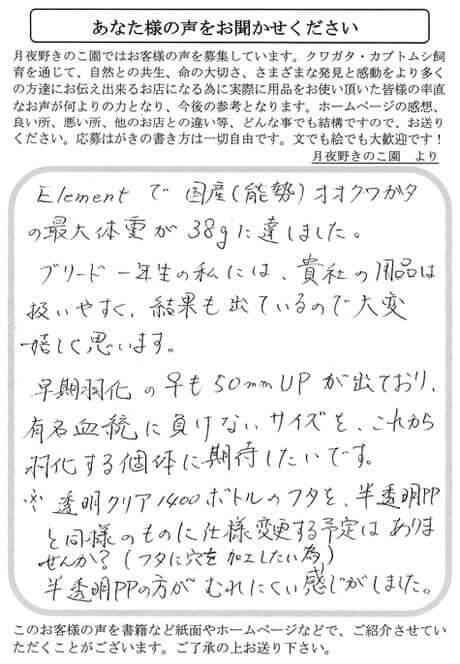 あなた様の声をお聞かせください
月夜野きのこ園ではお客様の声を募集しています。クワガタ・カブトムシ飼
育を通じて、自然との共生、命の大切さ、さまざまな発見と感動をより多く
の方達にお伝え出来るお店になる為に実際に用品をお使い頂いた皆様の率直
なお声が何よりの力となり、今後の参考となります。ホームページの感想、
良い所、悪い所、他のお店との違い等、どんな事でも結構ですので、お送り
ください。応募はがきの書き方は一切自由です。文でも絵でも大歓迎です！
月夜野きのこ園 より
Elementで国産(能勢)オオクワガタ
の最大体重が38gに達しました。
ブリード一年生の私には、貴社の用品は
扱いやすく、結果も出ているので大変
嬉しく思います。
早期羽化の♀も50mmUPが出ており、
有名血統に負けないサイズを、これから
羽化する個体に期待したいです。
※透明クリア1400ボトルのフタを、半透明PP
と同様のものに仕様変更する予定はありま
せんか？(フタに穴を加工したい為)
半透明PPの方がむれにくい感じがしました。
このお客様の声を書籍など紙面やホームページなどで、ご紹介させてい
ただくことがございます。ご了承の上お送り下さい。